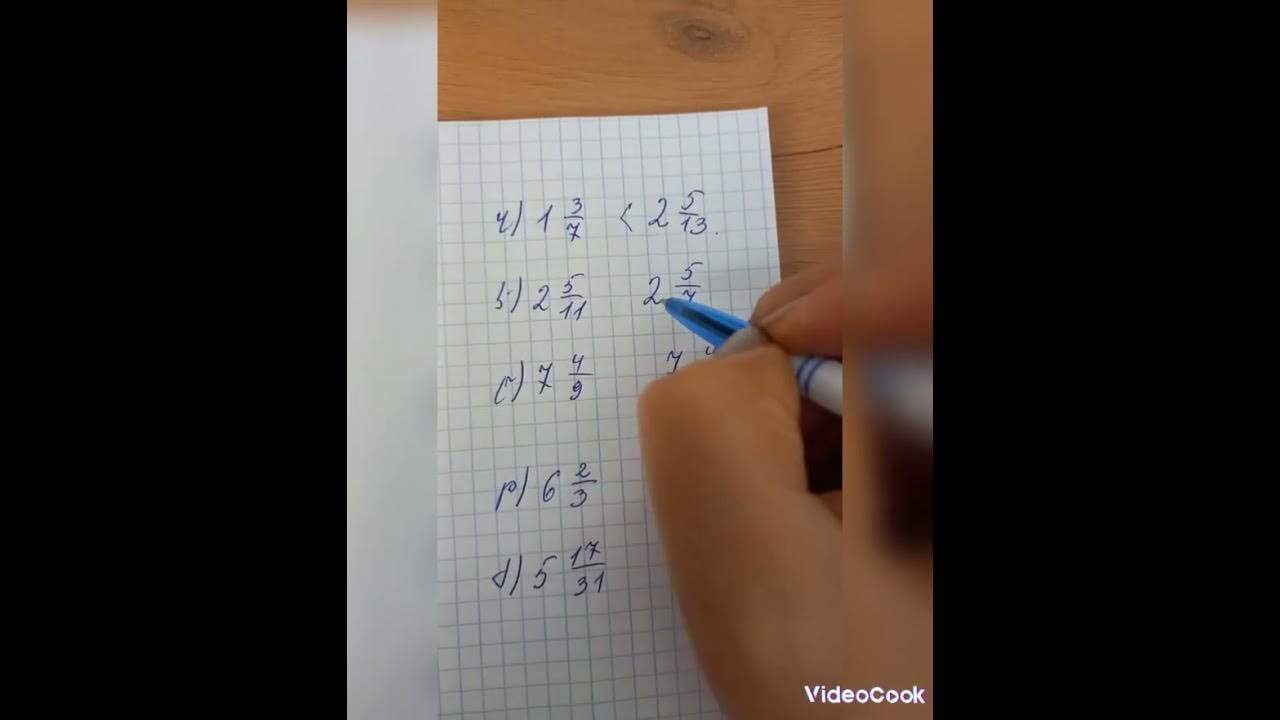 4) 1 3/7 < 2 5/13.
5) 2 5/11 2 5/7
c) 7 4/9 7
p) 6 2/3
d) 5 17/31
VideoCook